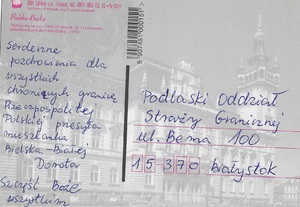 Bielsko-Biała
Serdeczne
pozdrowienia dla
wszystkich
chroniących granicę
Rzeczospolitej
Polskiej przesyła
mieszkanka
Bielska-Białej
Dorota
Szczęść Boże
wszystkim
Podlaski Oddział
Straży Granicznej
ul. Bema 100
15370 Białystok